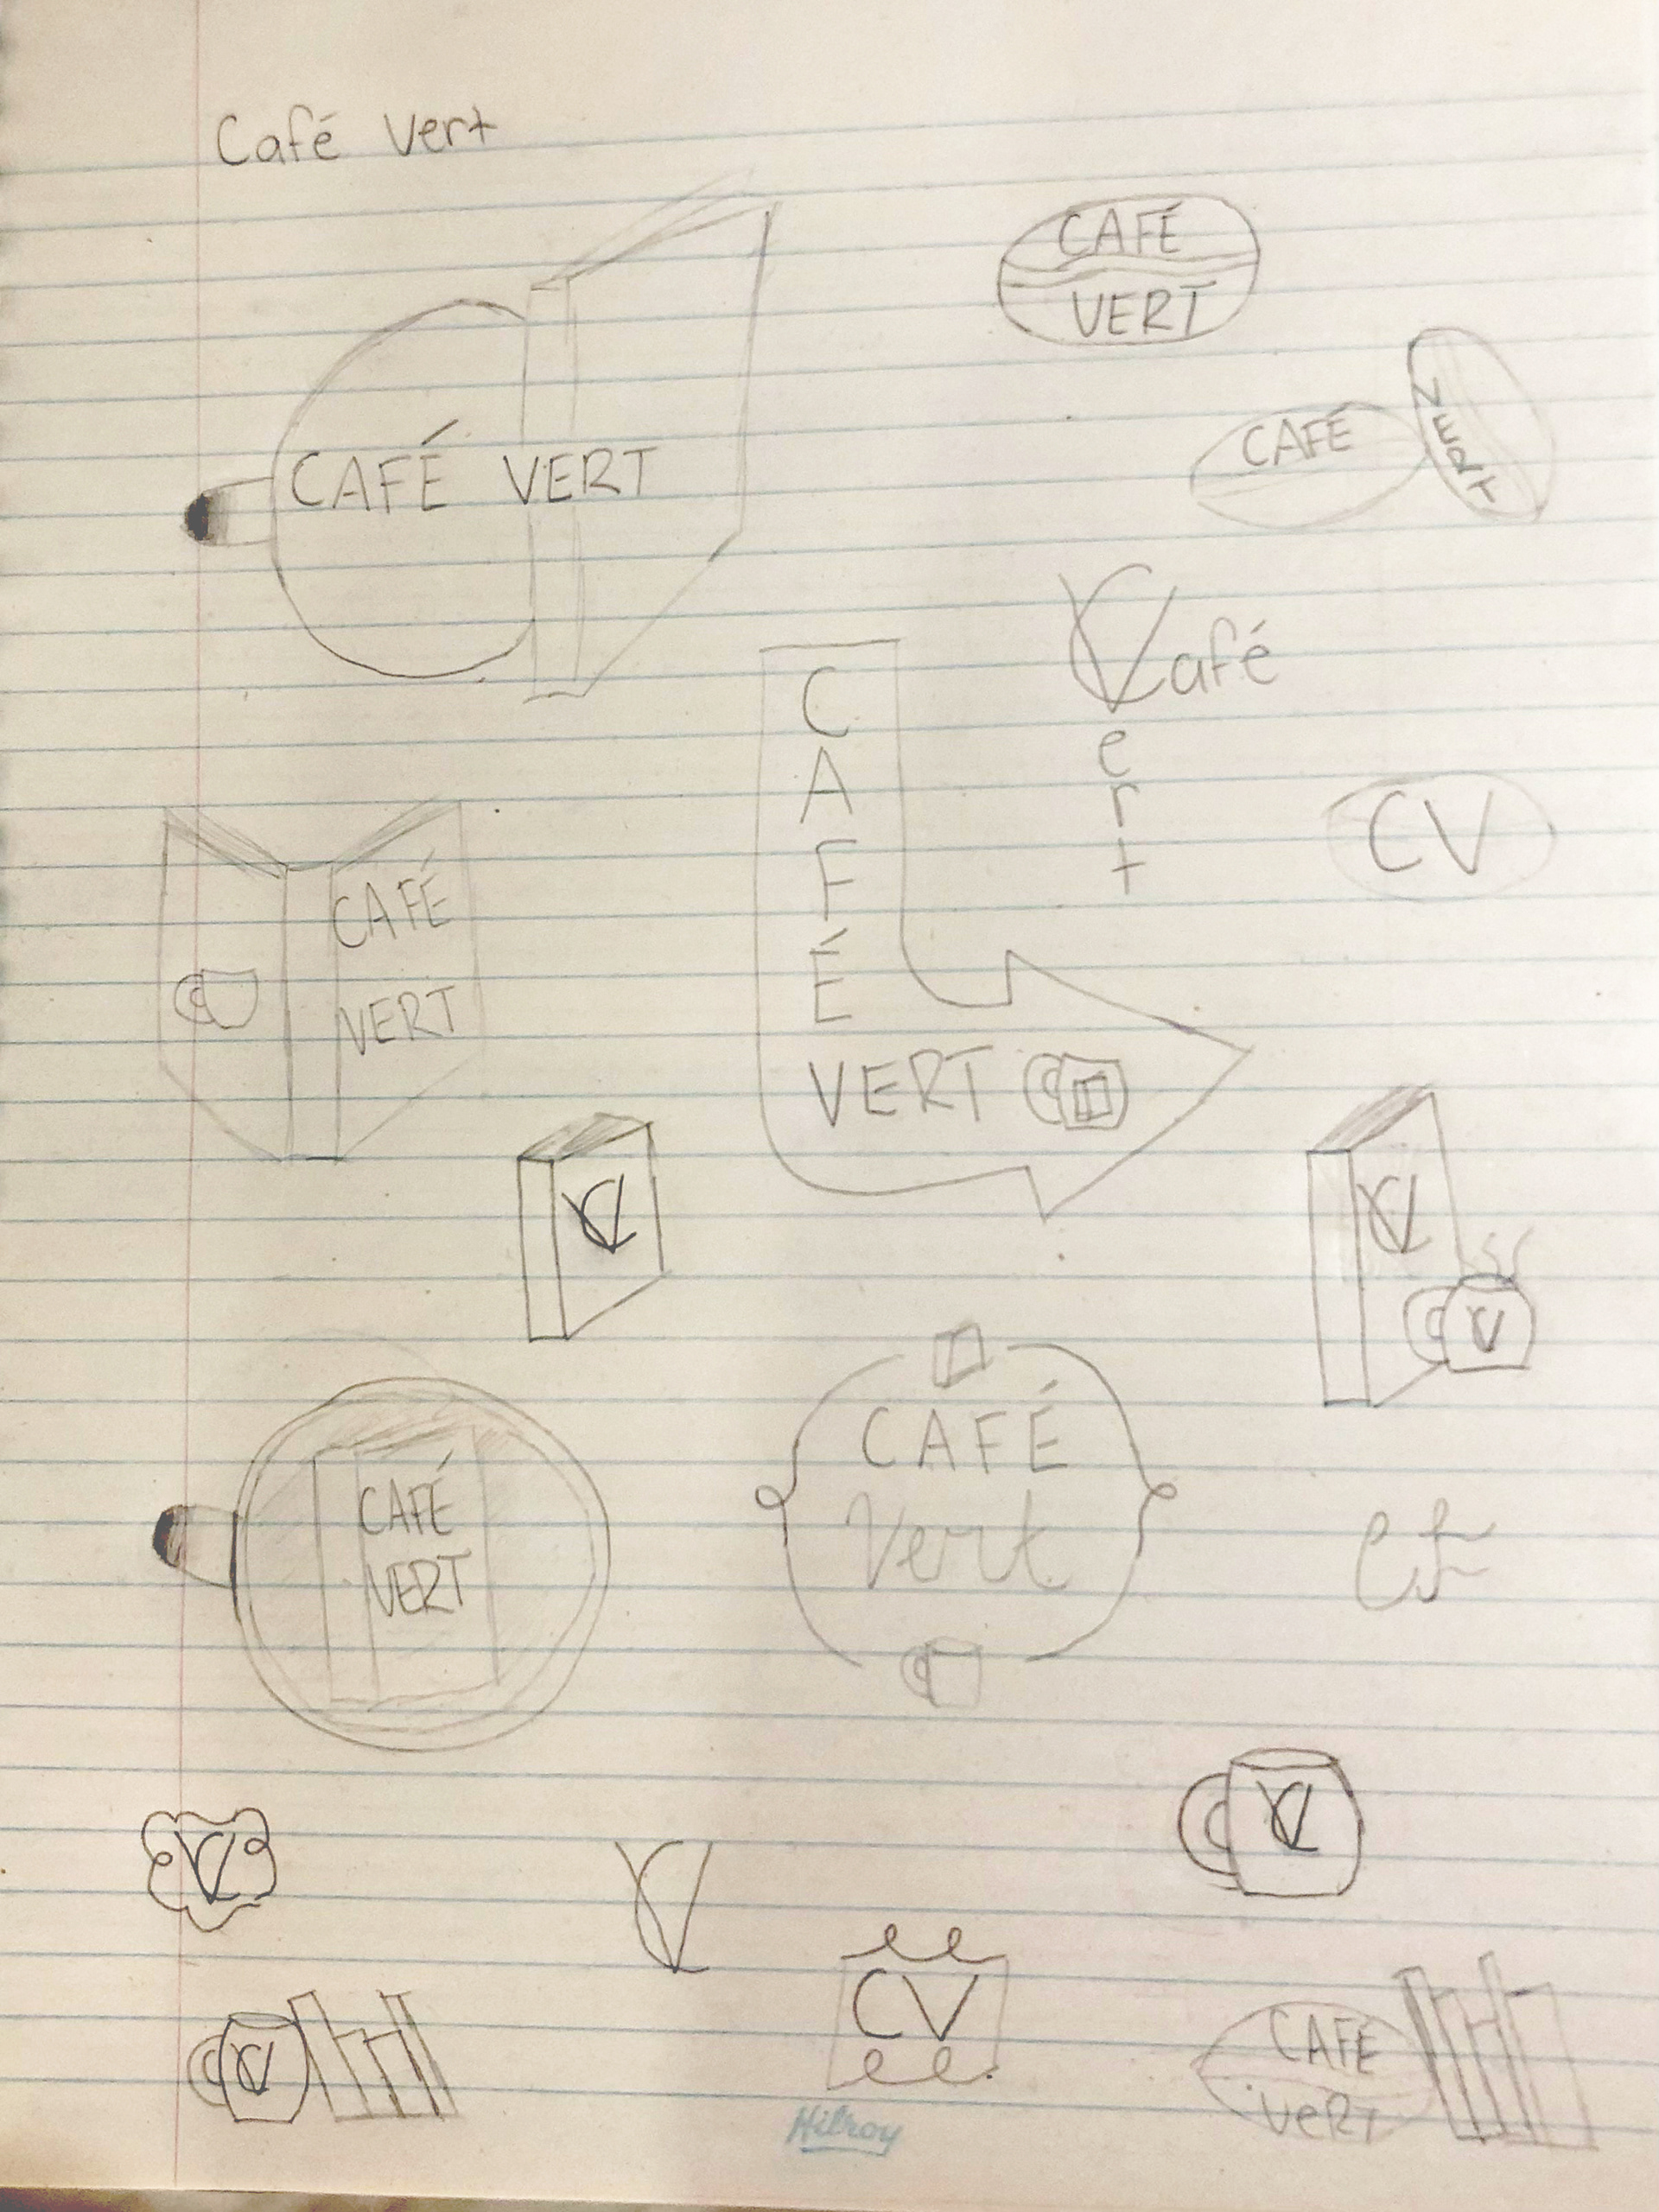 Café Vert
CAFÉ
VERT
CAFÉ
VERT
CAFÉ VERT
Café
ert
CAFÉ
VERT
CV
CAFÉ
VERT
VC
VC
VC
CAFÉ
Vert
CAFÉ
VERT
VC
VC
VC
CV
VC
CAFÉ
VERT
Hilroy